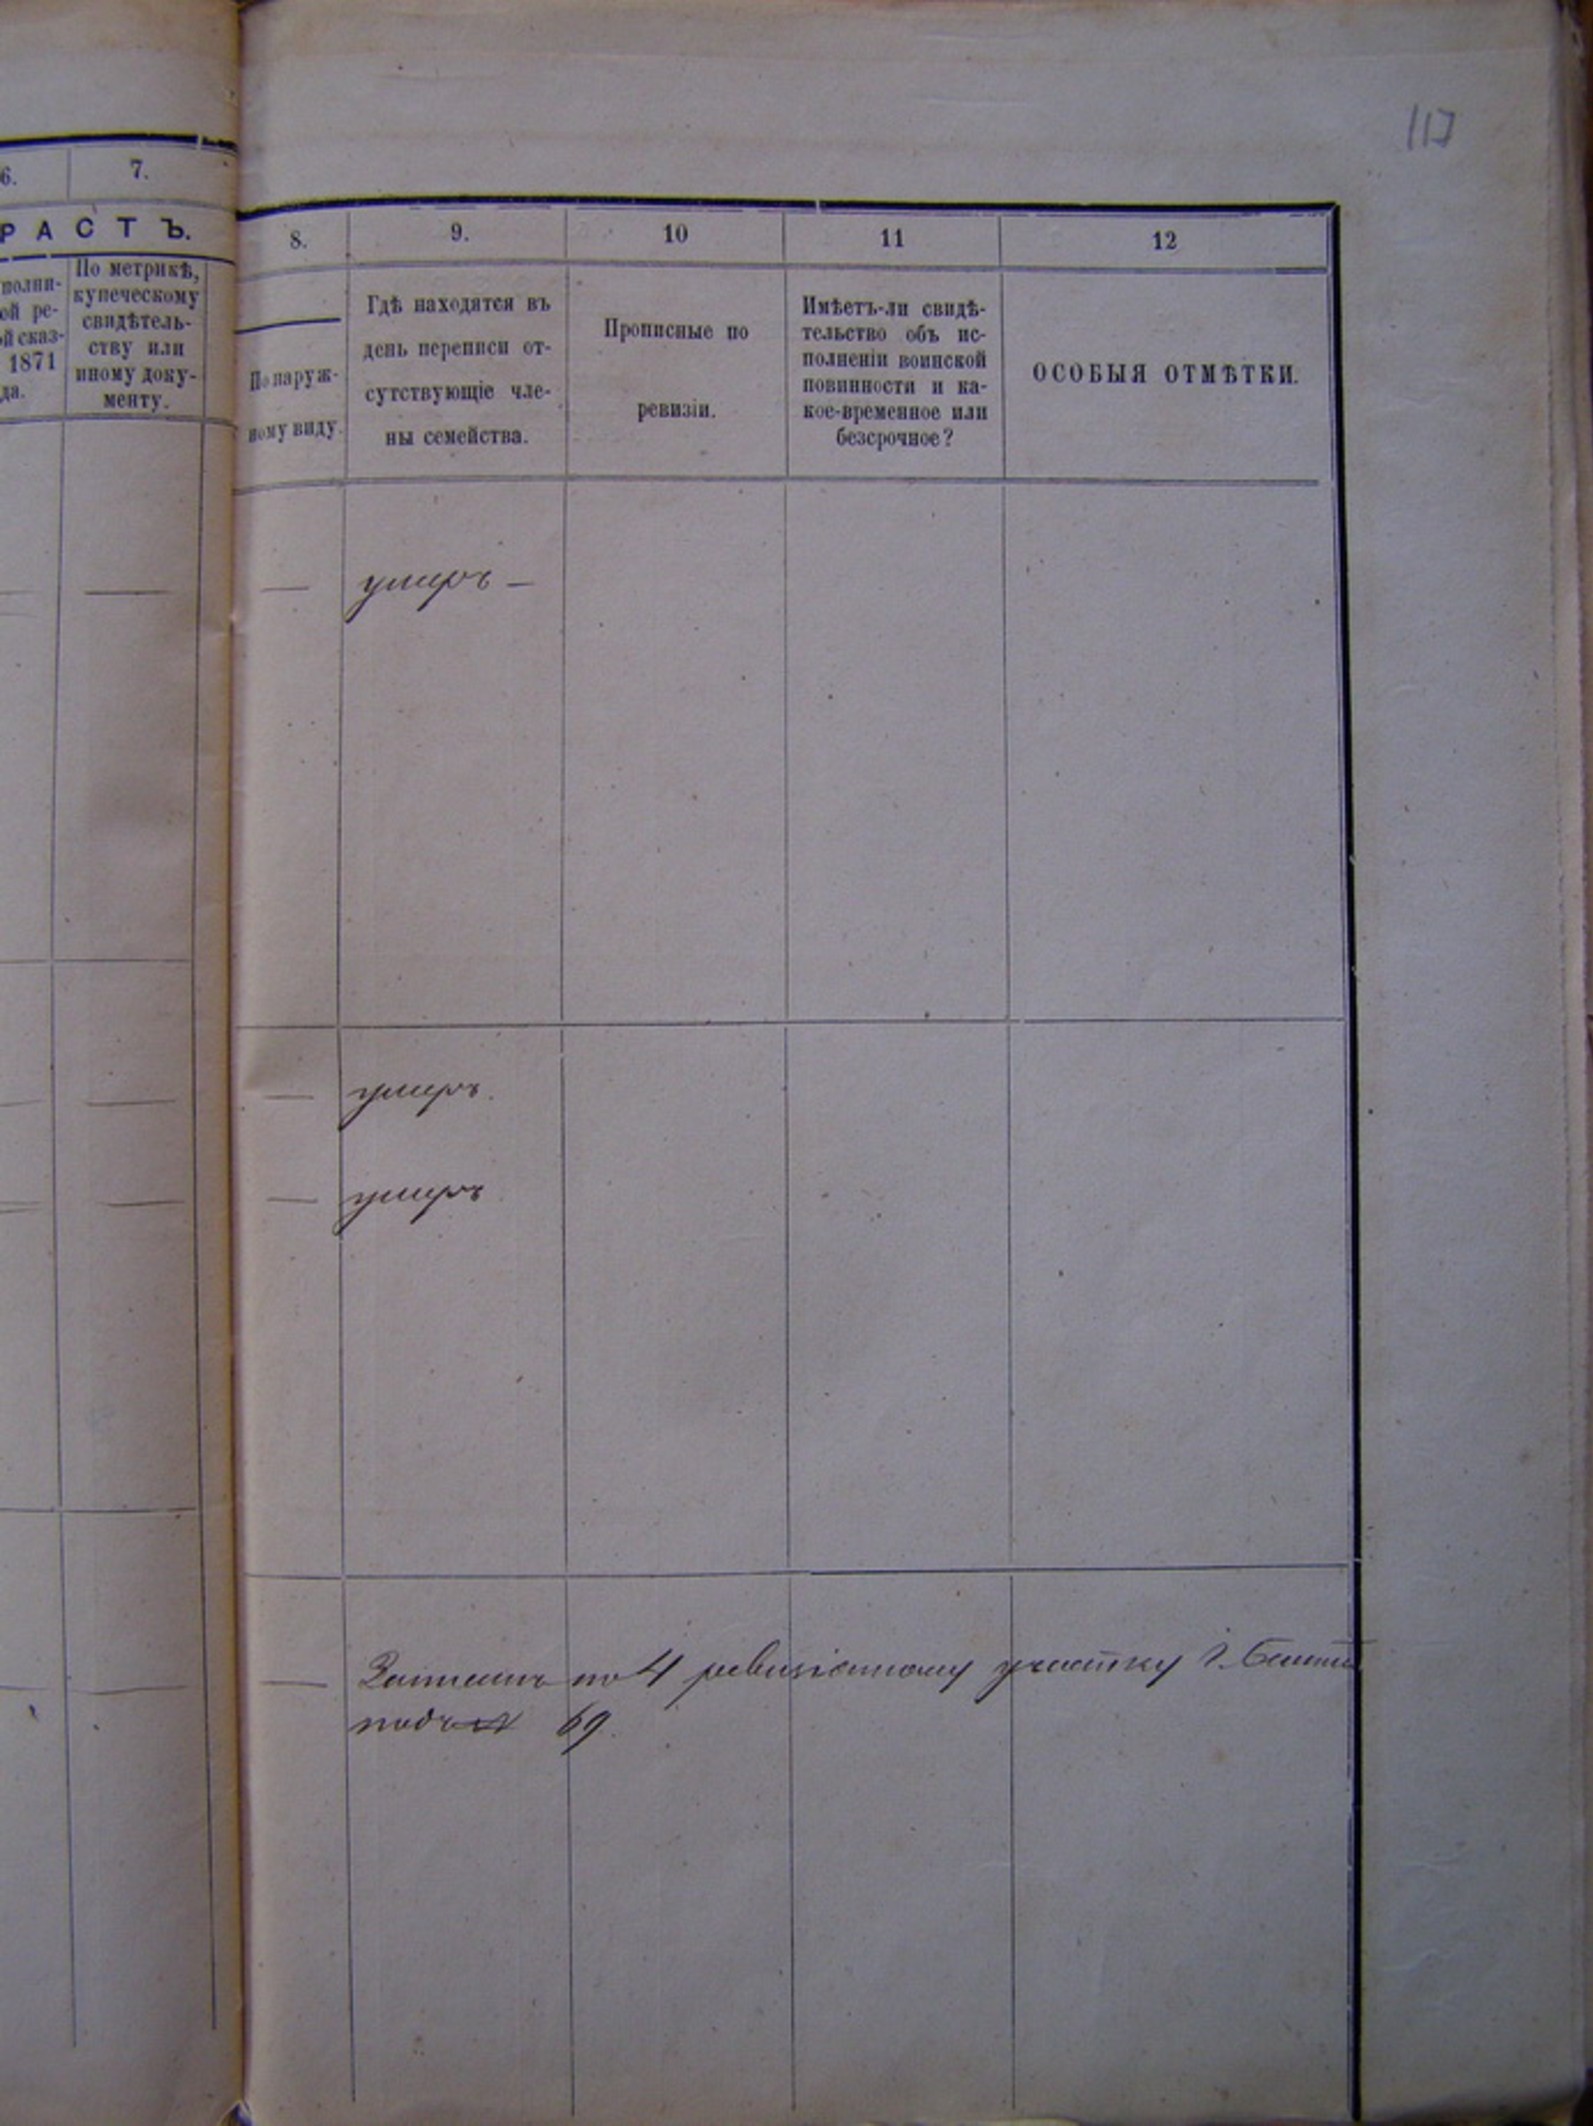 117
6.
7.
РАСТЪ.
полни-
ой ре-
ой сказ-
1871
да.
По метрикѣ,
купеческому
свидѣтель-
ству или
иному доку-
менту.
8.
9.
10
11
12
По наруж-
ному виду.
Гдѣ находятся въ
день переписи от-
сутствующіе чле-
ны семейства.
Прописные по
ревизіи.
Имѣетъ-ли свидѣ-
тельство объ ис-
полненіи воинской
повинности и ка-
кое-временное или
безсрочное?
ОСОБЫЯ ОТМѢТКИ.
— умеръ —
— умеръ.
— умеръ
— Записанъ по 4 ревизіонному участку г.
подъ № 69.